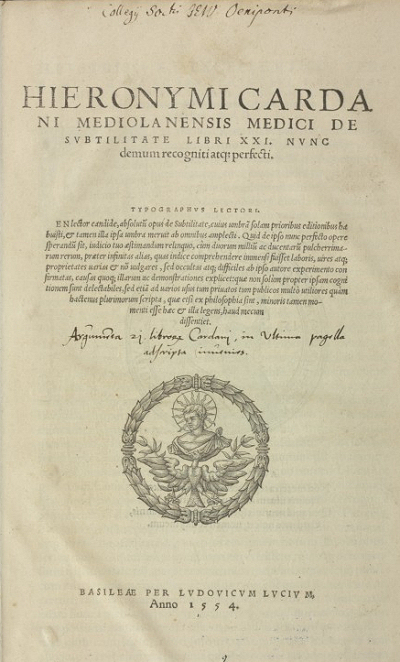 Collegij Soctis JESV Oeniponti
HIERONYMI CARDA
NI MEDIOLANENSIS MEDICI DE
SVBTILITATE LIBRI XXI. NVNC
demum recogniti atq; perfecti.
TYPOGRAPHVS LECTORI.
EN lector candide, absolutū opus de Subtilitate, cuius umbrā solam prioribus editionibus ha
buisti, & tamen illa ipsa umbra meruit ab omnibus amplecti. Quid de ipso nunc perfecto opere
sperandū sit, iudicio tuo æstimandum relinquo, cùm duorum milliū ac ducentarū pulcherrima-
rum rerum, præter infinitas alias, quas indice comprehendere immensi fuisset laboris, uires atq;
proprietates varias & nō uulgares, sed occultas atq; difficiles ab ipso autore experimento con
firmatas, causas quoq; illarum ac demonstrationes explicet: quæ non solùm propter ipsam cogni
tionem sunt delectabiles, sed etiā ad uarios usus tum priuatos tum publicos multò utiliores quàm
hactenus plurimorum scripta, quæ etsi ex philosophia sint, minoris tamen mo-
menti esse hæc & illa legens, haud mecum
dissentiet.
Argumenta 21 librorum Cardani, in Ultima pagella
adscripta invenies.
BASILEAE PER LVDOVICVM LVCIVM,
Anno 1554.